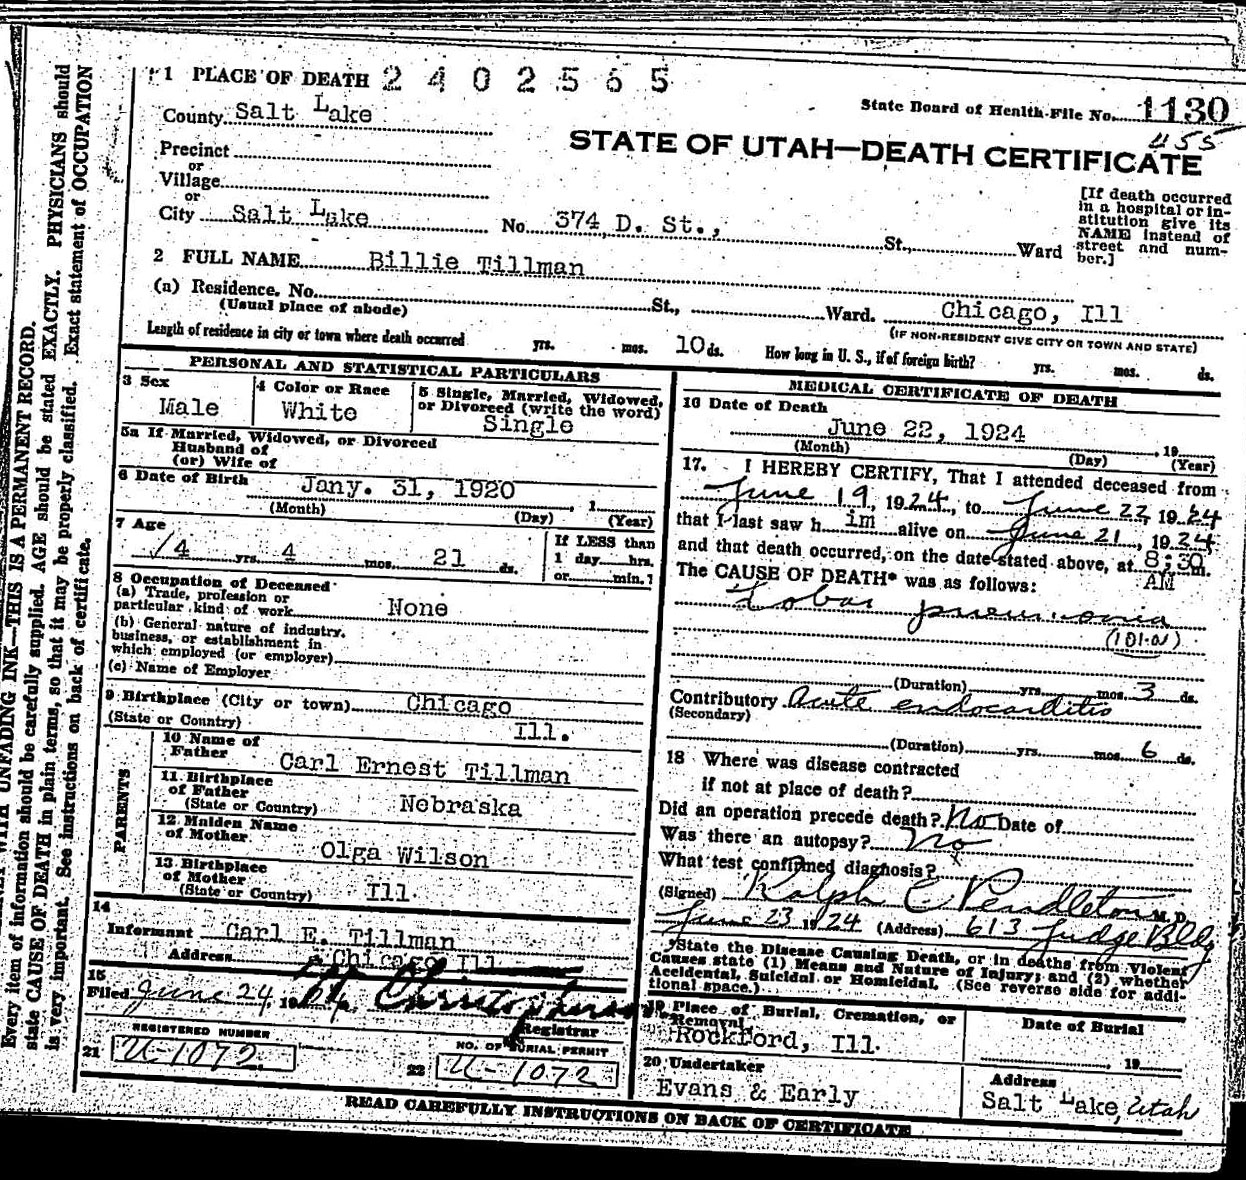 1 PLACE OF DEATH 2402565
State Board of Health-File No. 1130
455
County Salt Lake
STATE OF UTAH—DEATH CERTIFICATE
Precinct
or
Village
or
City Salt Lake No. 374 D. St., St., Ward
[If death occurred
in a hospital or in-
stitution give its
NAME instead of
street and num-
ber.]
2 FULL NAME Billie Tillman
(a) Residence. No. St., Ward. Chicago, Ill
(Usual place of abode)
(IF NON-RESIDENT GIVE CITY OR TOWN AND STATE)
Length of residence in city or town where death occurred yrs. mos. 10 ds. How long in U. S., if of foreign birth? yrs. mos. ds.
PERSONAL AND STATISTICAL PARTICULARS
3 Sex
Male
4 Color or Race
White
5 Single, Married, Widowed,
or Divorced (write the word)
Single
5a If Married, Widowed, or Divorced
Husband of
(or) Wife of
6 Date of Birth Jany. 31, 1920, 1
(Month) (Day) (Year)
7 Age
4 yrs. 4 mos. 21 ds.
If LESS than
1 day hrs.
or min.?
8 Occupation of Deceased
(a) Trade, profession or
particular kind of work None
(b) General nature of industry,
business, or establishment in
which employed (or employer)
(c) Name of Employer
9 Birthplace (City or town) Chicago
(State or Country) Ill.
PARENTS
10 Name of
Father Carl Ernest Tillman
11 Birthplace
of Father
(State or Country) Nebraska
12 Maiden Name
of Mother Olga Wilson
13 Birthplace
of Mother
(State or Country) Ill.
14
Informant Carl E. Tillman
Address Chicago Ill
15
Filed June 24, 19
Registrar
REGISTERED NUMBER
21 U-1072
NO. OF BURIAL PERMIT
22 U-1072
MEDICAL CERTIFICATE OF DEATH
16 Date of Death
June 22, 1924, 19
(Month) (Day) (Year)
17. I HEREBY CERTIFY, That I attended deceased from
June 19, 1924, to June 22, 1924
that I last saw him alive on June 21, 1924,
and that death occurred, on the date stated above, at 8:30 m.
AM
The CAUSE OF DEATH* was as follows:
Lobar pneumonia
(101-a)
(Duration) yrs. mos. 3 ds.
Contributory Acute endocarditis
(Secondary)
(Duration) yrs. mos. 6 ds.
18 Where was disease contracted
if not at place of death?
Did an operation precede death? No Date of
Was there an autopsy? No
What test confirmed diagnosis?
(Signed) Ralph C Pendleton M. D.
June 23 1924 (Address) 613 Judge Bldg
*State the Disease Causing Death, or in deaths from Violent
Causes state (1) Means and Nature of Injury; and (2) whether
Accidental, Suicidal or Homicidal. (See reverse side for addi-
tional space.)
19 Place of Burial, Cremation, or
Removal
Rockford, Ill.
Date of Burial
, 19
20 Undertaker
Evans & Early
Address
Salt Lake, Utah
READ CAREFULLY INSTRUCTIONS ON BACK OF CERTIFICATE
WITH UNFADING INK—THIS IS A PERMANENT RECORD.
Every item of information should be carefully supplied. AGE should be stated EXACTLY. PHYSICIANS should
state CAUSE OF DEATH in plain terms, so that it may be properly classified. Exact statement of OCCUPATION
is very important. See instructions on back of certificate.